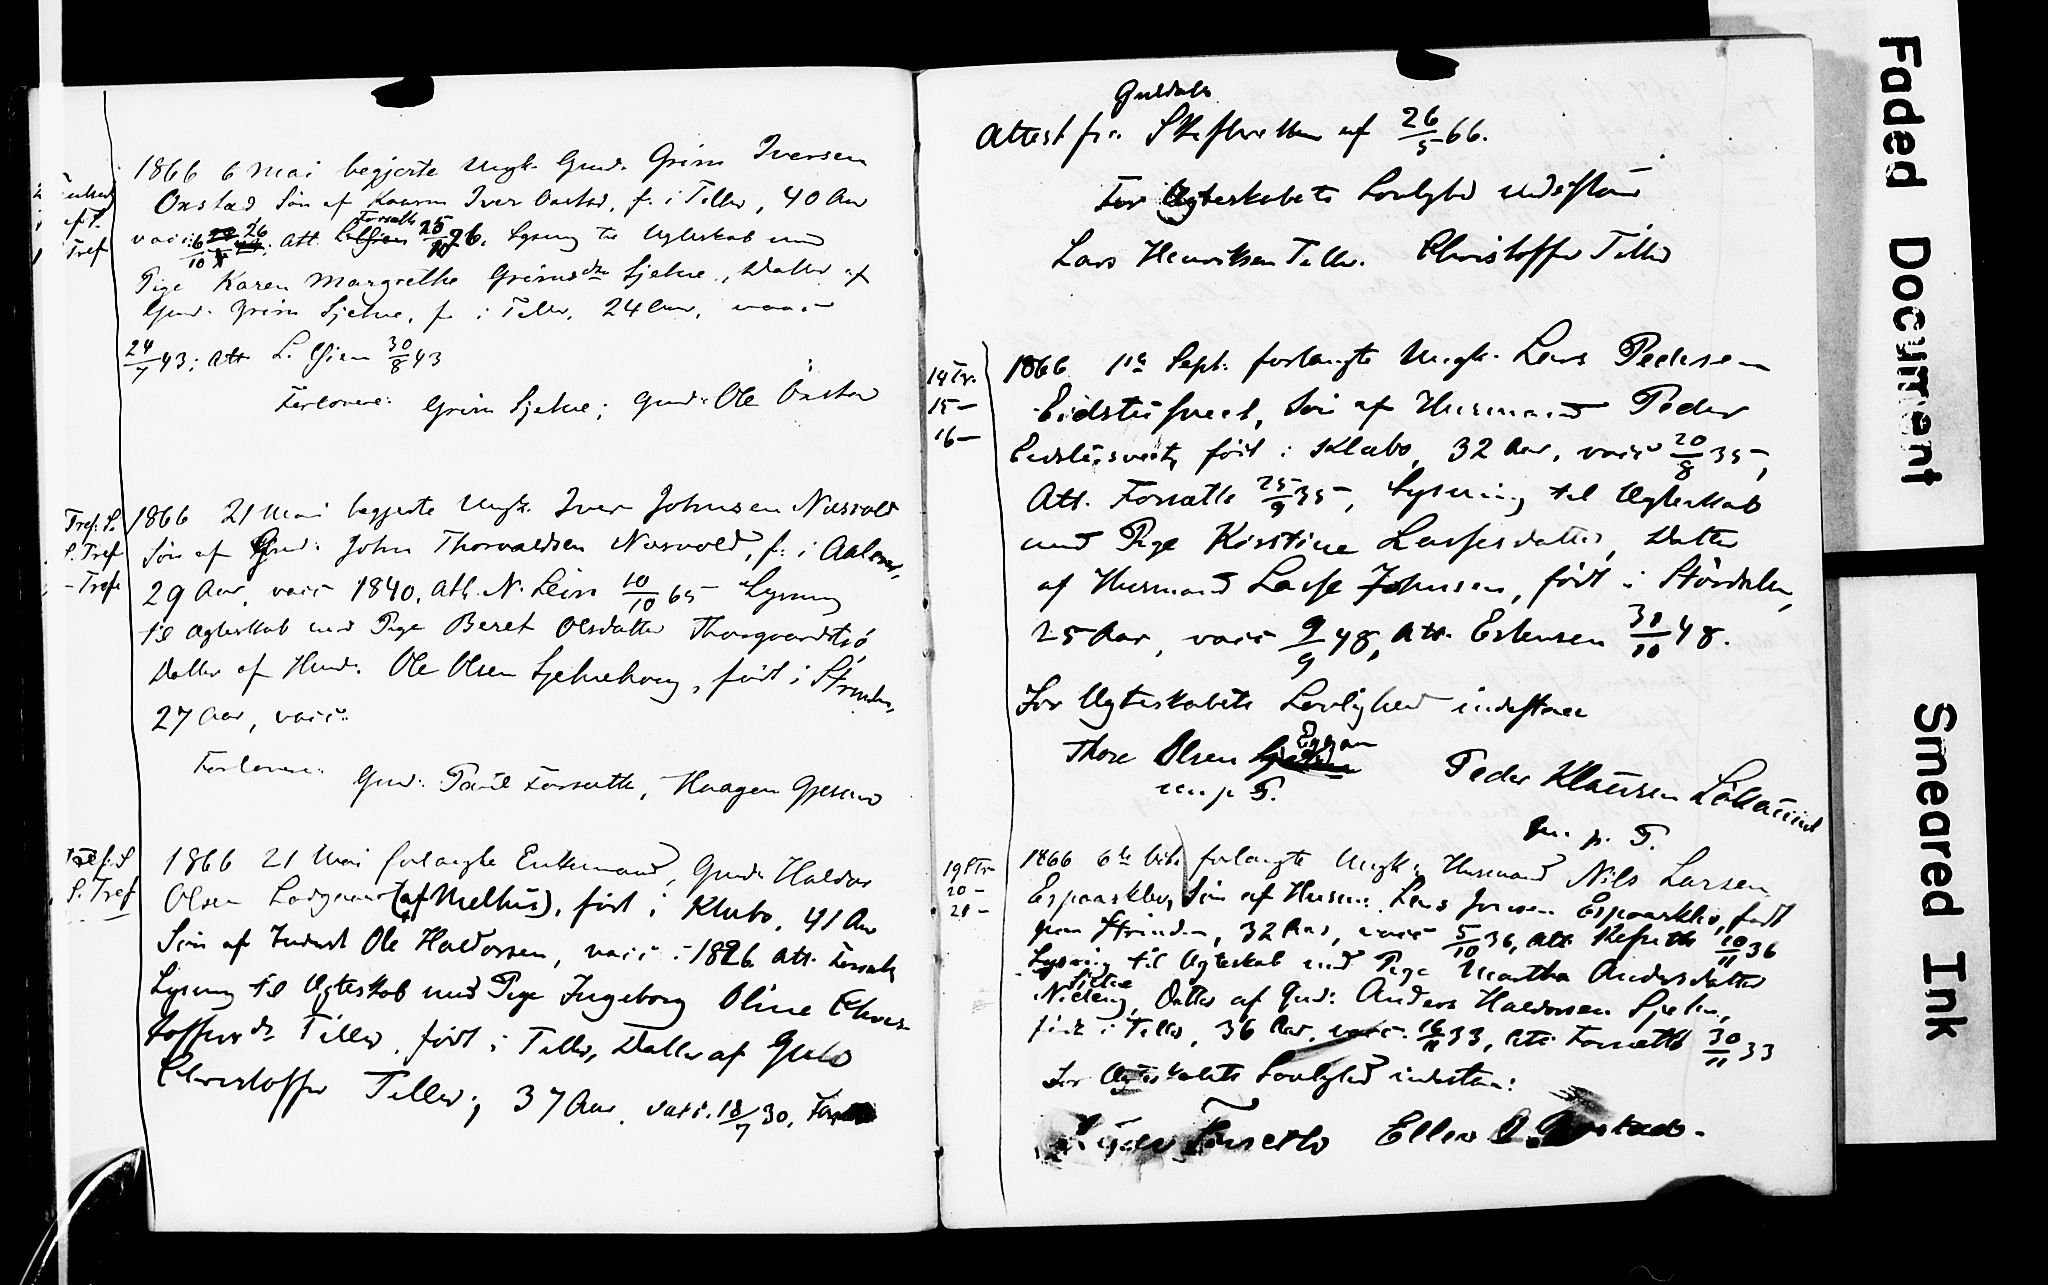 1866 6 Mai begjerte Ungk. Gmd. Grim Iversen
Onstad Søn af Iver Onstad, f. i Tiller, 40 Aar
vacc: 6/10 26; Att. Forsæth 25/10 26. Lysning til Ægteskab med
Pige Karen Margrethe Grimsdtr Sjetne, Datter af
Gmd. Grim Sjetne, f. i Tiller, 24 Aar, vacc
24/7 43; Att L. 30/8 43
Forlovere: Grim Sjetne; Gmd: Ole Onstad
Tref. S.
S. Tref
- Tref
1866 21 Mai begjerte Ungk. Iver Johnsen Nusvold
Søn af Gmd: John Thorvaldsen Nusvold, f. i Aalen,
29 Aar, vacc 1840, Att. N. Lein 10/10 65 Lysning
til Ægteskab med Pige Beret Olsdatter
Datter af Hmd. Ole Olsen Sjetnehaug, født i Strinden,
27 Aar, vacc:
Forlovere: Gmd: Paul Forsæth, Haagen
Tref. S
S. Tref
1866 21 Mai forlangte Enkemand, Gmd. Haldor
Olsen (af Melhus), født i Klæbo, 41 Aar
Søn af Inderst Ole Haldorsen, vacc: 1826 Att. Forsæth
Lysning til Ægteskab med Pige Ingeborg Oline Chris-
toffersdr Tiller, født i Tiller, Datter af Gmd
Christoffer Tiller; 37 Aar, vacc. 18/7 30,
Guldals
Attest fra Skifteretten af 26/5 66.
For Ægteskabets Lovlighed indestaa
Lars Henriksen Tiller. Christoffer Tiller
14 Tr.
15 —
16 —
1866 11te Sept. forlangte Ungk. Lars Pedersen
Eidstusveet, Søn af Husmand Peder
Eidstusveet, født i Klæbo, 32 Aar, vacc 20/8 35,
Att. Forsæth 25/9 35, Lysning til Ægteskab
med Pige Kirstine Lassesdatter, Datter
af Husmand Lasse Johnsen, født i Stördalen,
25 Aar, vacc 9/9 48, Att. Estensen 31/10 48.
For Ægteskabets Lovlighed indestaae
Thore Olsen Eggan Peder Klausen Lökaunet
m. p. F. m. p. F.
19 S Tr
20 —
21 —
1866 6te forlangte Ungk. Husmand Nils Larsen
Espaasklev, Søn af Husm. Lars Jonsen Espaasklev, født
paa Strinden, 32 Aar, vacc 5/10 36, Att. 10/11 36
Lysning til Ægteskab med Pige Martha Andersdatter
Sjetne
Datter af Gmd: Anders Haldorsen Sjetne,
født i Tiller, 36 Aar, vacc. 16/11 33, Att. Forsæth 30/11 33
For Ægteskabets Lovlighed indestaa:
Forseth Ellev
Faded Document
Smeared Ink